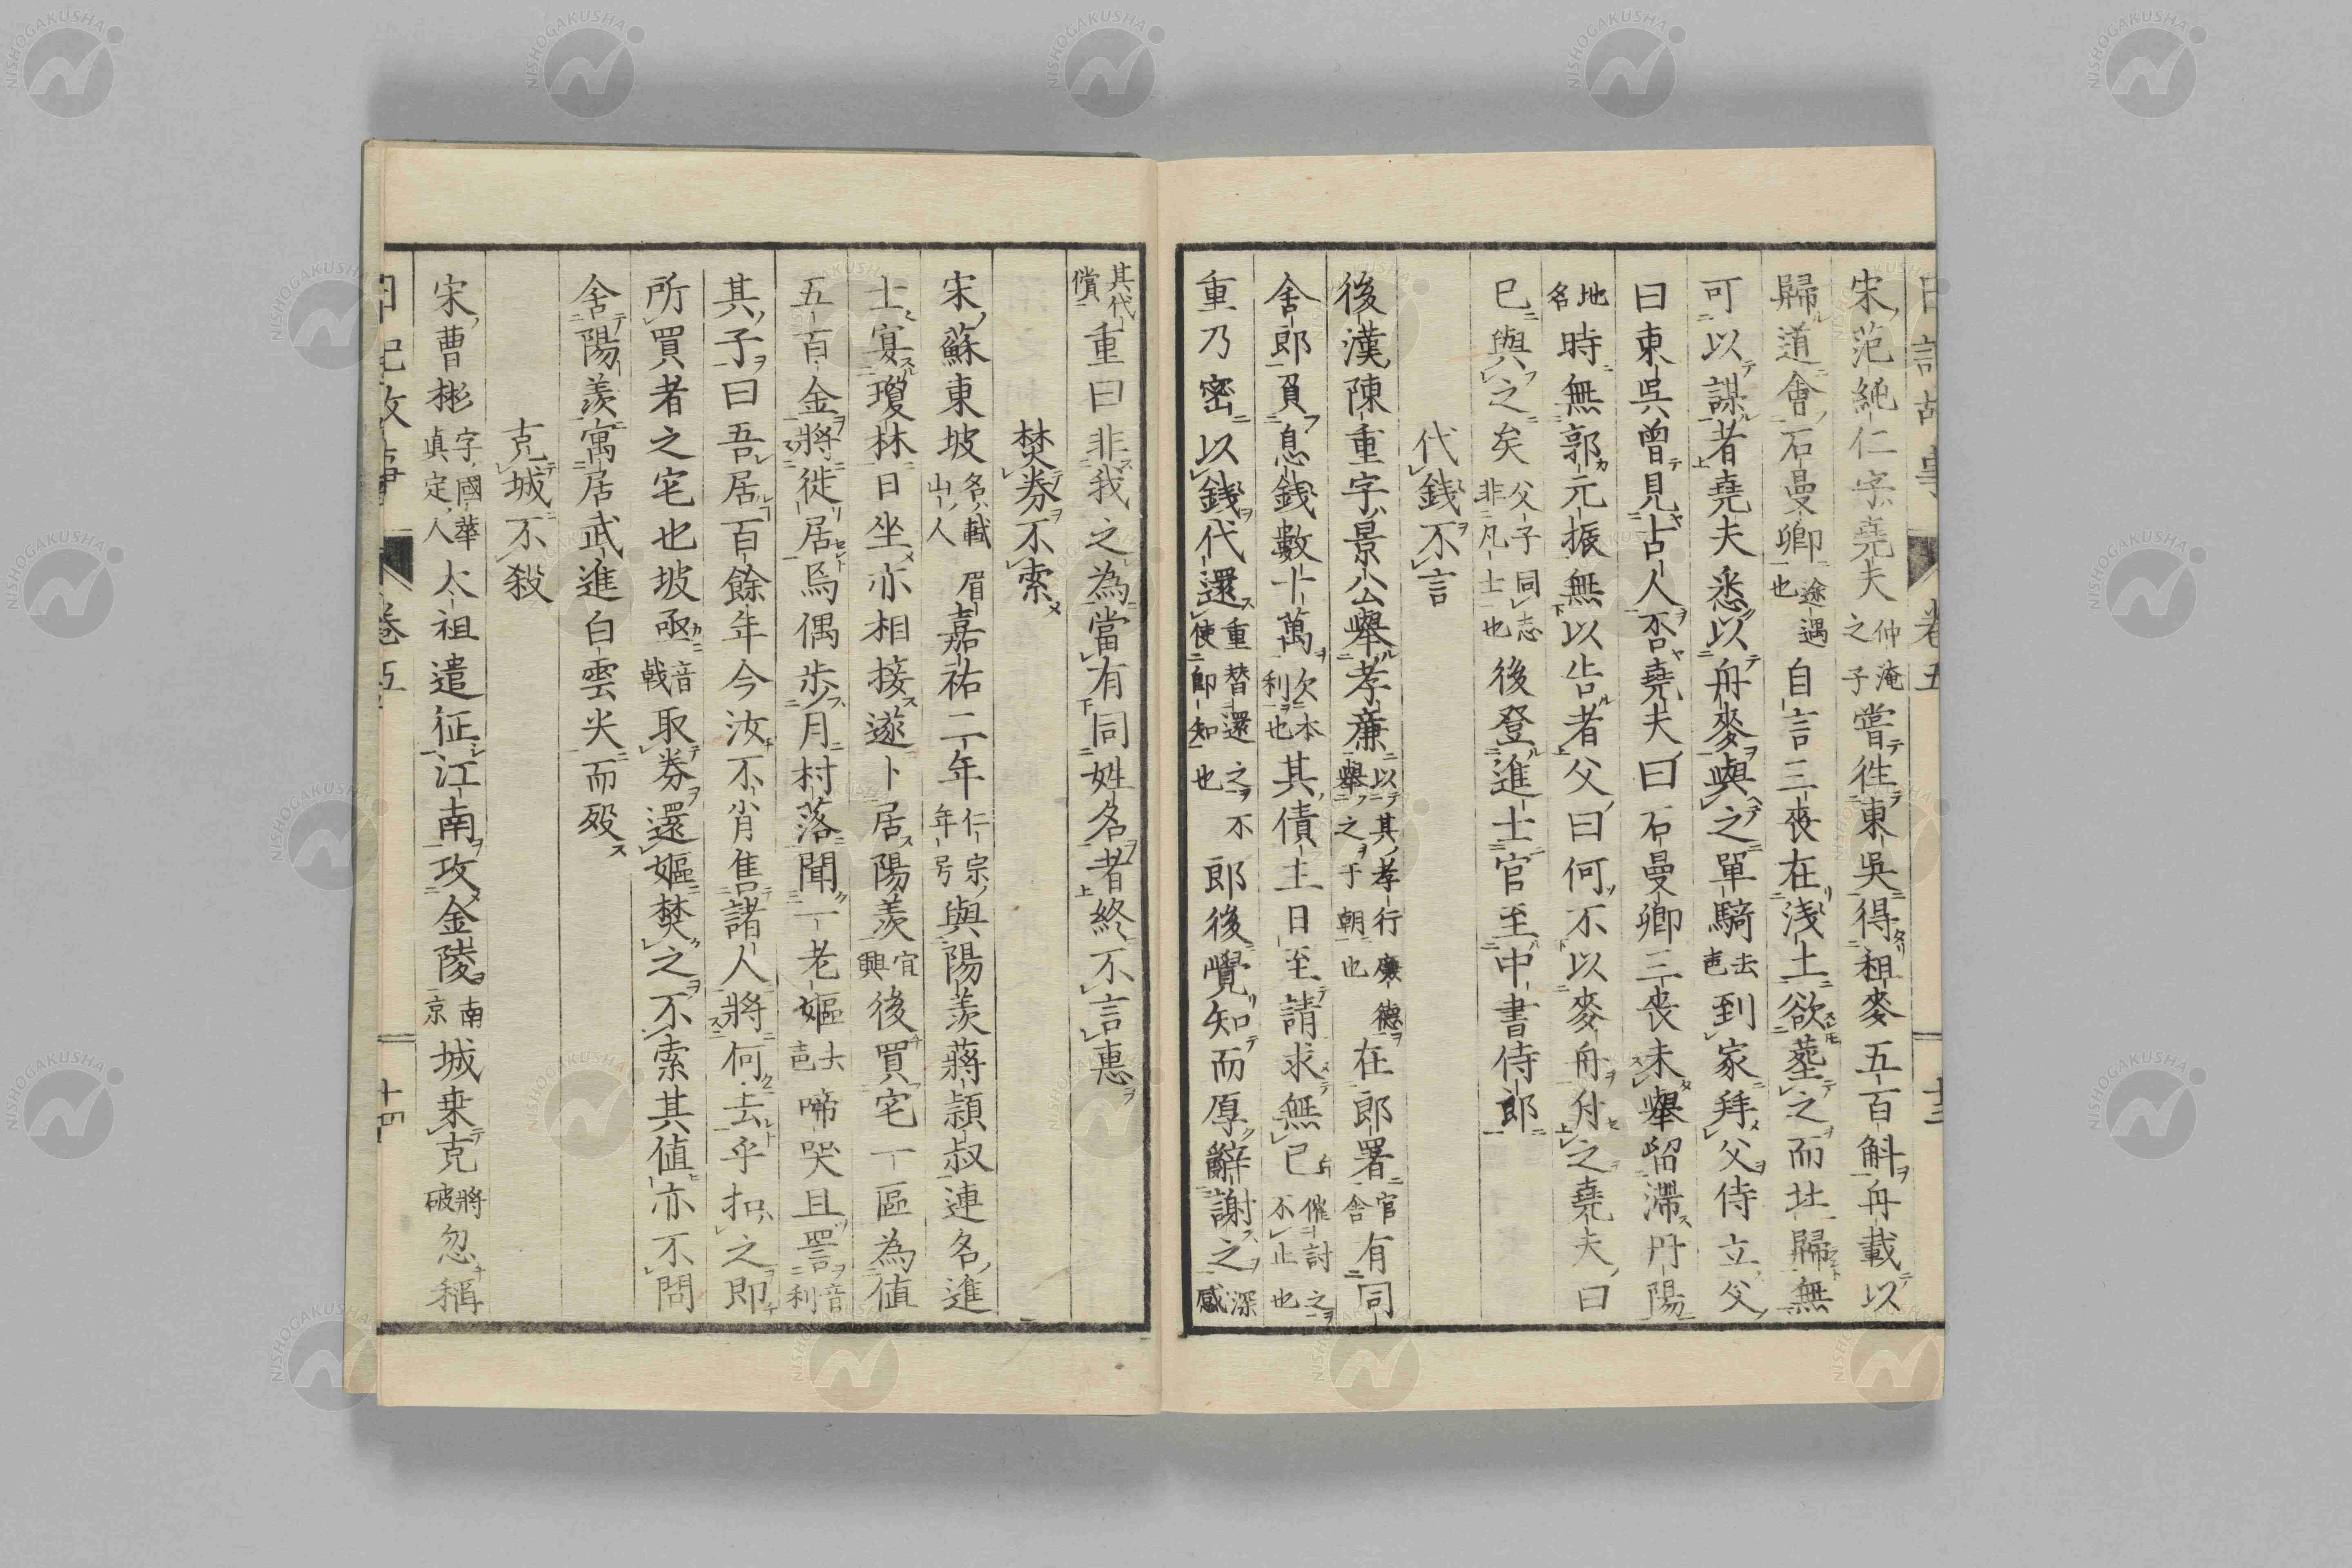 日記故事 卷五 十三
宋范純仁字堯夫仲淹之子嘗往東吳得租麥五百斛舟載以
歸道會石曼卿途遇也自言三喪在浅土欲葬之而北歸無
可以謀者堯夫悉以舟麥與之單騎去声到家拜父侍立父
曰東吳曾見古人否堯夫曰石曼卿三喪未舉留滯丹陽
地名時無郭元振無以告者父曰何不以麥舟付之堯夫曰
已與之矣父子同志非凡士也後登進士官至中書侍郎
代錢不言
後漢陳重字景公舉孝廉以其孝行廉德舉之于朝也在郎署官舍有同
舍郎負息錢數十萬欠本利也其債主日至請求無已催討之不止也
重乃密以錢代還重替還之不使郎知也郎後覺知而厚辭謝之深感
其代償重曰非我之為當有同姓名者終不言惠
焚券不索
宋蘇東坡名軾眉山人嘉祐二年仁宗年号與陽羨蔣頴叔連名進
士宴瓊林日坐亦相接遂卜居陽羨宜興後買宅一區為値
五百金將徙居焉偶步月村落聞一老嫗去声啼哭且詈音利
其子曰吾居百餘年今汝不肖售諸人將何去乎扣之即
所買者之宅也坡亟音戟取券還嫗焚之不索其値亦不問
舍陽羨寓居武進白雲尖而歿
克城不殺
宋曹彬字國華眞定人太祖遣征江南攻金陵南京城垂克將破忽稱
日記故事 卷五 十四